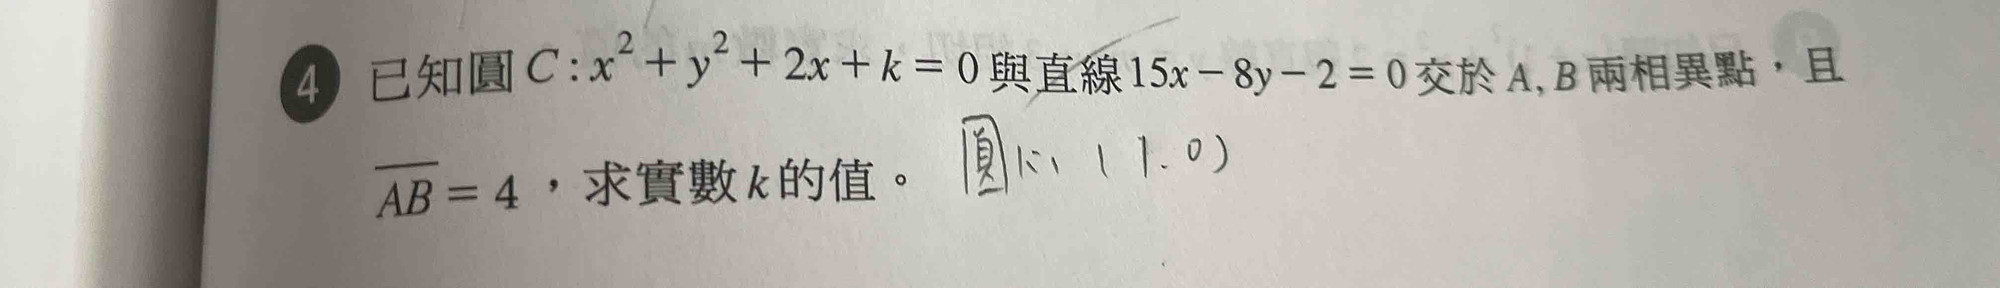 4 已知圓 C : x² + y² + 2x + k = 0 與直線 15x − 8y − 2 = 0 交於 A, B 兩相異點，且
AB = 4，求實數 k 的值。 圓心 ( 1. 0 )